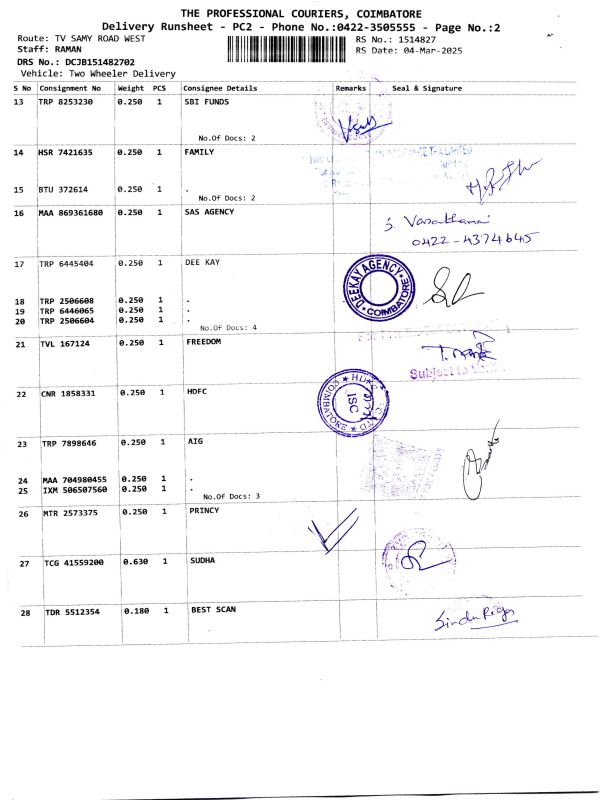 THE PROFESSIONAL COURIERS, COIMBATORE
Delivery Runsheet - PC2 - Phone No.:0422-3505555 - Page No.:2
Route: TV SAMY ROAD WEST RS No.: 1514827
Staff: RAMAN RS Date: 04-Mar-2025
DRS No.: DCJB151482702
Vehicle: Two Wheeler Delivery
S No Consignment No Weight PCS Consignee Details Remarks Seal & Signature
13 TRP 8253230 0.250 1 SBI FUNDS
No.Of Docs: 2
14 HSR 7421635 0.250 1 FAMILY
15 BTU 372614 0.250 1 .
No.Of Docs: 2
16 MAA 869361680 0.250 1 SAS AGENCY
S. Vasanthamai
0422-4374645
17 TRP 6445404 0.250 1 DEE KAY
DEEKAY AGENCY
COIMBATORE
18 TRP 2506608 0.250 1 .
19 TRP 6446065 0.250 1 .
20 TRP 2506604 0.250 1 .
No.Of Docs: 4
21 TVL 167124 0.250 1 FREEDOM
Subject to
22 CNR 1858331 0.250 1 HDFC
ISC
COIMBATORE
23 TRP 7898646 0.250 1 AIG
24 MAA 704980455 0.250 1 .
25 IXM 506507560 0.250 1 .
No.Of Docs: 3
26 MTR 2573375 0.250 1 PRINCY
27 TCG 41559200 0.630 1 SUDHA
28 TDR 5512354 0.180 1 BEST SCAN